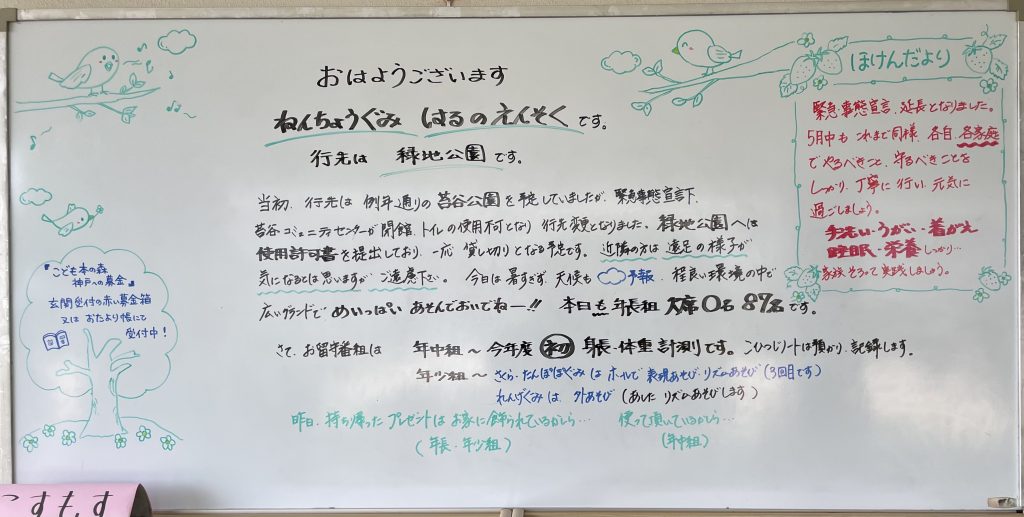 おはようございます
ねんちょうぐみ はるのえんそく です。
行先は 緑地公園 です。
当初、行先は 例年通りの 苔谷公園を予定していましたが、緊急事態宣言下、
苔谷コミュニティセンターが閉館、トイレの使用不可となり 行先変更となりました。緑地公園へは
使用許可書を提出しており、一応 貸し切りとなる予定です。近隣の方は 遠足の様子が
気になるとは思いますが ご遠慮下さい。 今日は暑すぎず、天候も 予報、程良い環境の中で
広いグランドで めいっぱい あそんでおいでねー!! 本日も年長組 欠席0名 87名です。
さて、お留守番組は 年中組〜今年度 初 身長・体重 計測です。こひつじノートは預かり、記録します。
年少組〜 さくら・たんぽぽぐみは ホールで 表現あそび・リズムあそび(3回目です)
れんげぐみは 外あそび(あした リズムあそびします)
昨日、持ち帰った プレゼントは お家に飾られているかしら… 使って頂いているかしら…
(年長・年少組) (年中組)
ほけんだより
緊急事態宣言、延長となりました。
5月中も これまで同様、各自、各家庭
でやるべきこと、守るべきことを
しっかり、丁寧に行い、元気に
過ごしましょう。
手洗い・うがい・着がえ
睡眠・栄養 しっかり…
家族そろって 実践しましょう。
『こども本の森
神戸への募金』
玄関受付の赤い募金箱
又は おたより帳にて
受付中!
こすもす